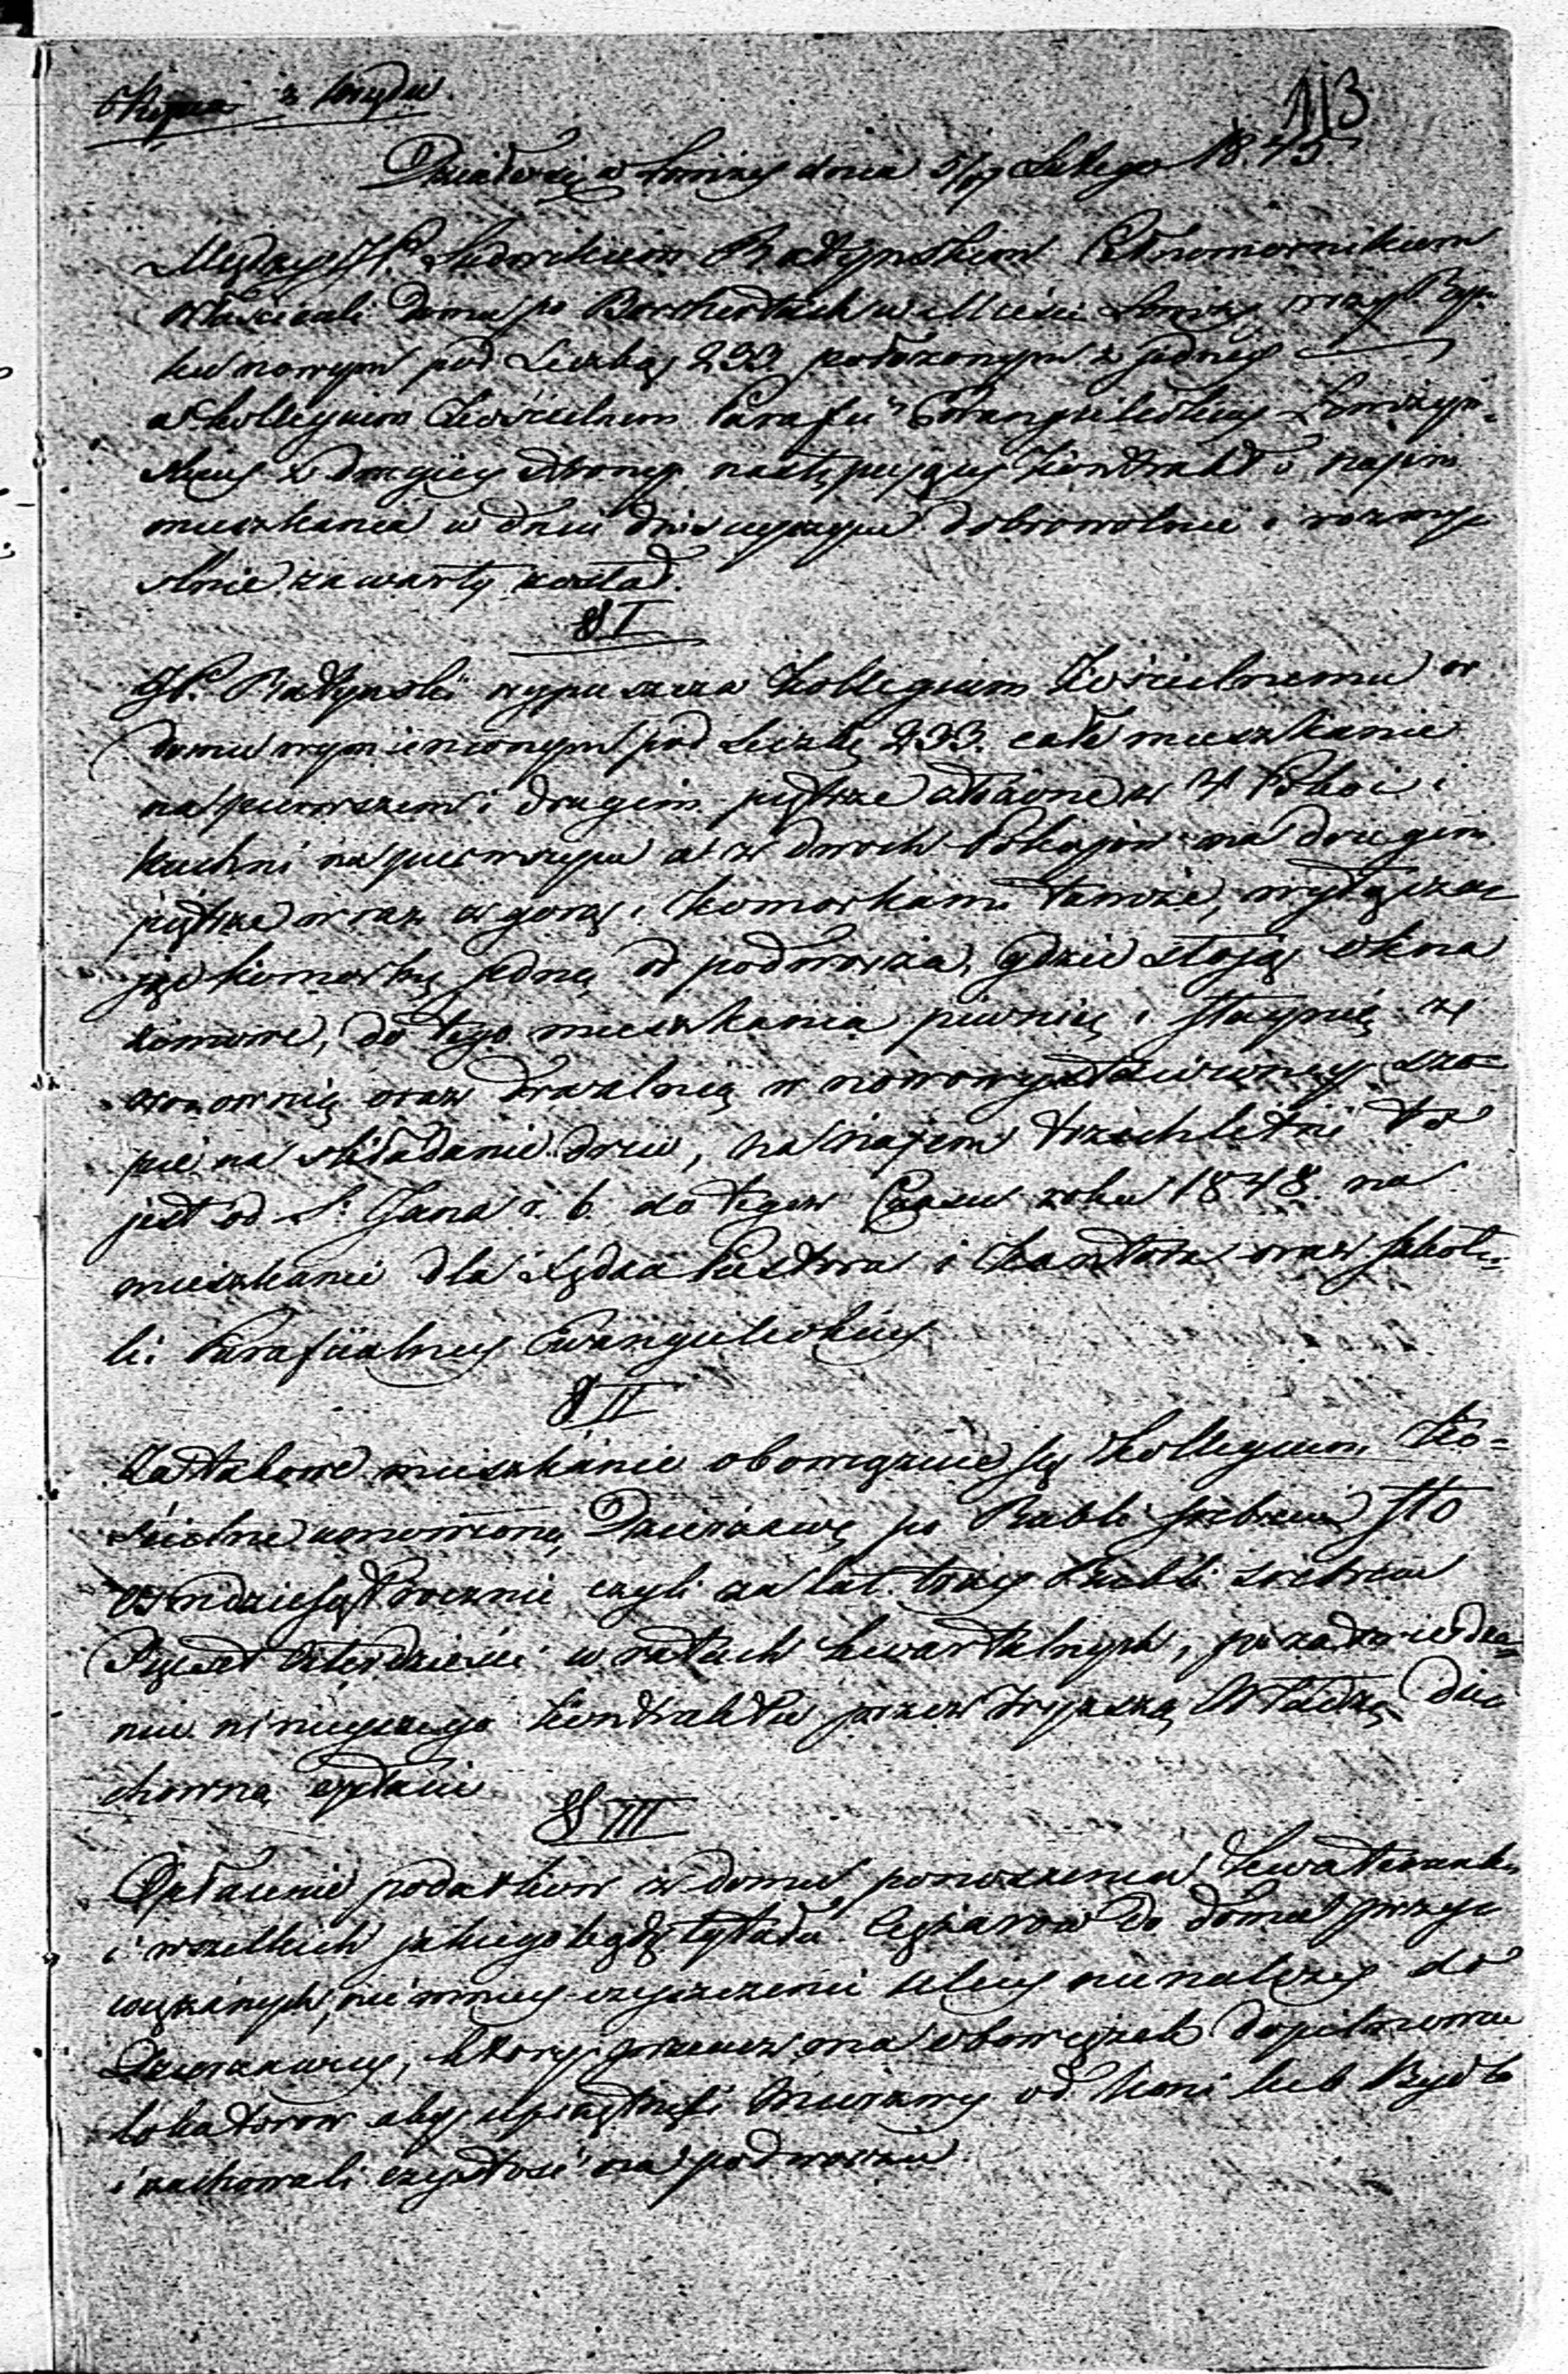 Kopia z Urzędu.
113
Działo się w Łomży dnia 5/17 Lutego 1845.
Między JP. Ludwikiem Ratyńskim
Właścicielem Domu po Borchertach w Mieście Łomży przy
ku nowym pod Liczbą 233. położonym z jedney
a Kollegium Kościelnem Parafii Ewangelickiey Łomżyń-
skiey z drugiey strony następujący Kontrakt o najem
mieszkania w dniu dzisieyszym dobrowolnie i rozmy-
ślnie zawarty został.
§ I
JP. Ratyński wypuszcza Kollegium Kościelnemu w
domu wymienionym pod Liczbą 233. całe mieszkanie
na pierwszem i drugim piętrze złożone z 4 Pokoi i
kuchni na pierwszym a z dwóch Pokojów na drugim
piętrze wraz z górą i Komorkami tamże, wyłącza-
jąc komorkę jedną od podworza, gdzie stoją okna
zimowe, do tego mieszkania piwnicę i staynię z
wozownią oraz drwalnią w nowowystawioney szo-
pie na składanie drzew, na najem trzechletni to
jest od S. Jana r. b. do tegoż Czasu roku 1848. na
mieszkanie dla Xiędza Pastora i Kantora oraz szkoł-
ki Parafialney Ewangelickiey
§ II
Za takowe mieszkanie obowiązuie się Kollegium Ko-
ścielne umowioną Dzierżawę po Rubli srebrem sto
ośmdziesiąt rocznie czyli za lat trzy Rubli srebrem
Pięćset czterdzieści w ratach kwartalnych, po zatwierdze-
niu ninieyszego Kontraktu przez Wyższą Władzę Du-
chowną opłacić
§ III
Opłacenie podatków z domu ponoszenia Kwaterunku
i wszelkich jakiegobądź tytułu Ciężarów do domu przy-
wiązanych, nie mniey czyszczenie ulicy nienależy do
Dzierżawcy, który przecież ma obowiązek dopilnowania
lokatorów aby uprzątneli Mierzwy od Koni lub Bydła
i zachowali czystość na podworzu.